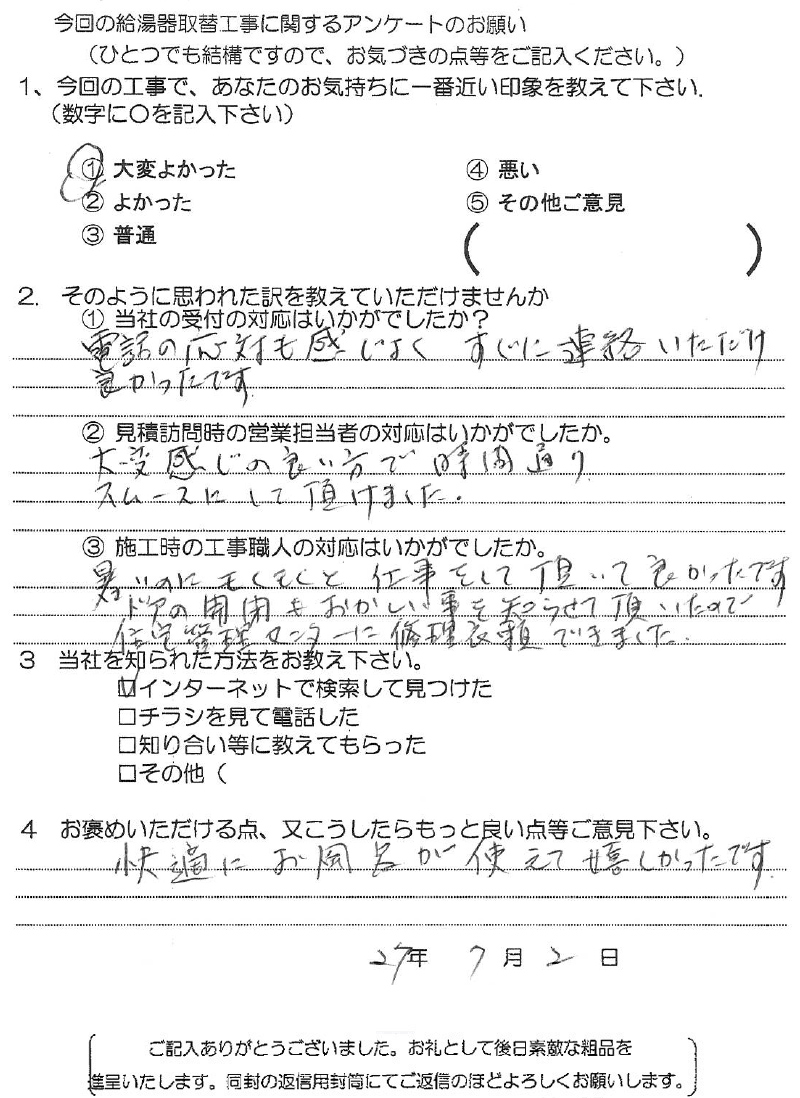 今回の給湯器取替工事に関するアンケートのお願い
（ひとつでも結構ですので、お気づきの点等をご記入ください。）
1、今回の工事で、あなたのお気持ちに一番近い印象を教えて下さい.
（数字に〇を記入下さい）
① 大変よかった ④ 悪い
② よかった ⑤ その他ご意見
③ 普通 （ ）
2. そのように思われた訳を教えていただけませんか
① 当社の受付の対応はいかがでしたか？
電話の応対も感じよく すぐに連絡いただけ
良かったです.
② 見積訪問時の営業担当者の対応はいかがでしたか。
大変感じの良い方で時間通り
スムースにして頂けました.
③ 施工時の工事職人の対応はいかがでしたか。
暑いのにもくもくと仕事をして頂いて良かったです
ドアの開閉もおかしい事を知らせて頂いたので
住宅管理センターに修理依頼できました.
3 当社を知られた方法をお教え下さい。
☑インターネットで検索して見つけた
□チラシを見て電話した
□知り合い等に教えてもらった
□その他（
4 お褒めいただける点、又こうしたらもっと良い点等ご意見下さい。
快適にお風呂が使えて嬉しかったです.
27年 7月 2日
ご記入ありがとうございました。お礼として後日素敵な粗品を
進呈いたします。同封の返信用封筒にてご返信のほどよろしくお願いします。